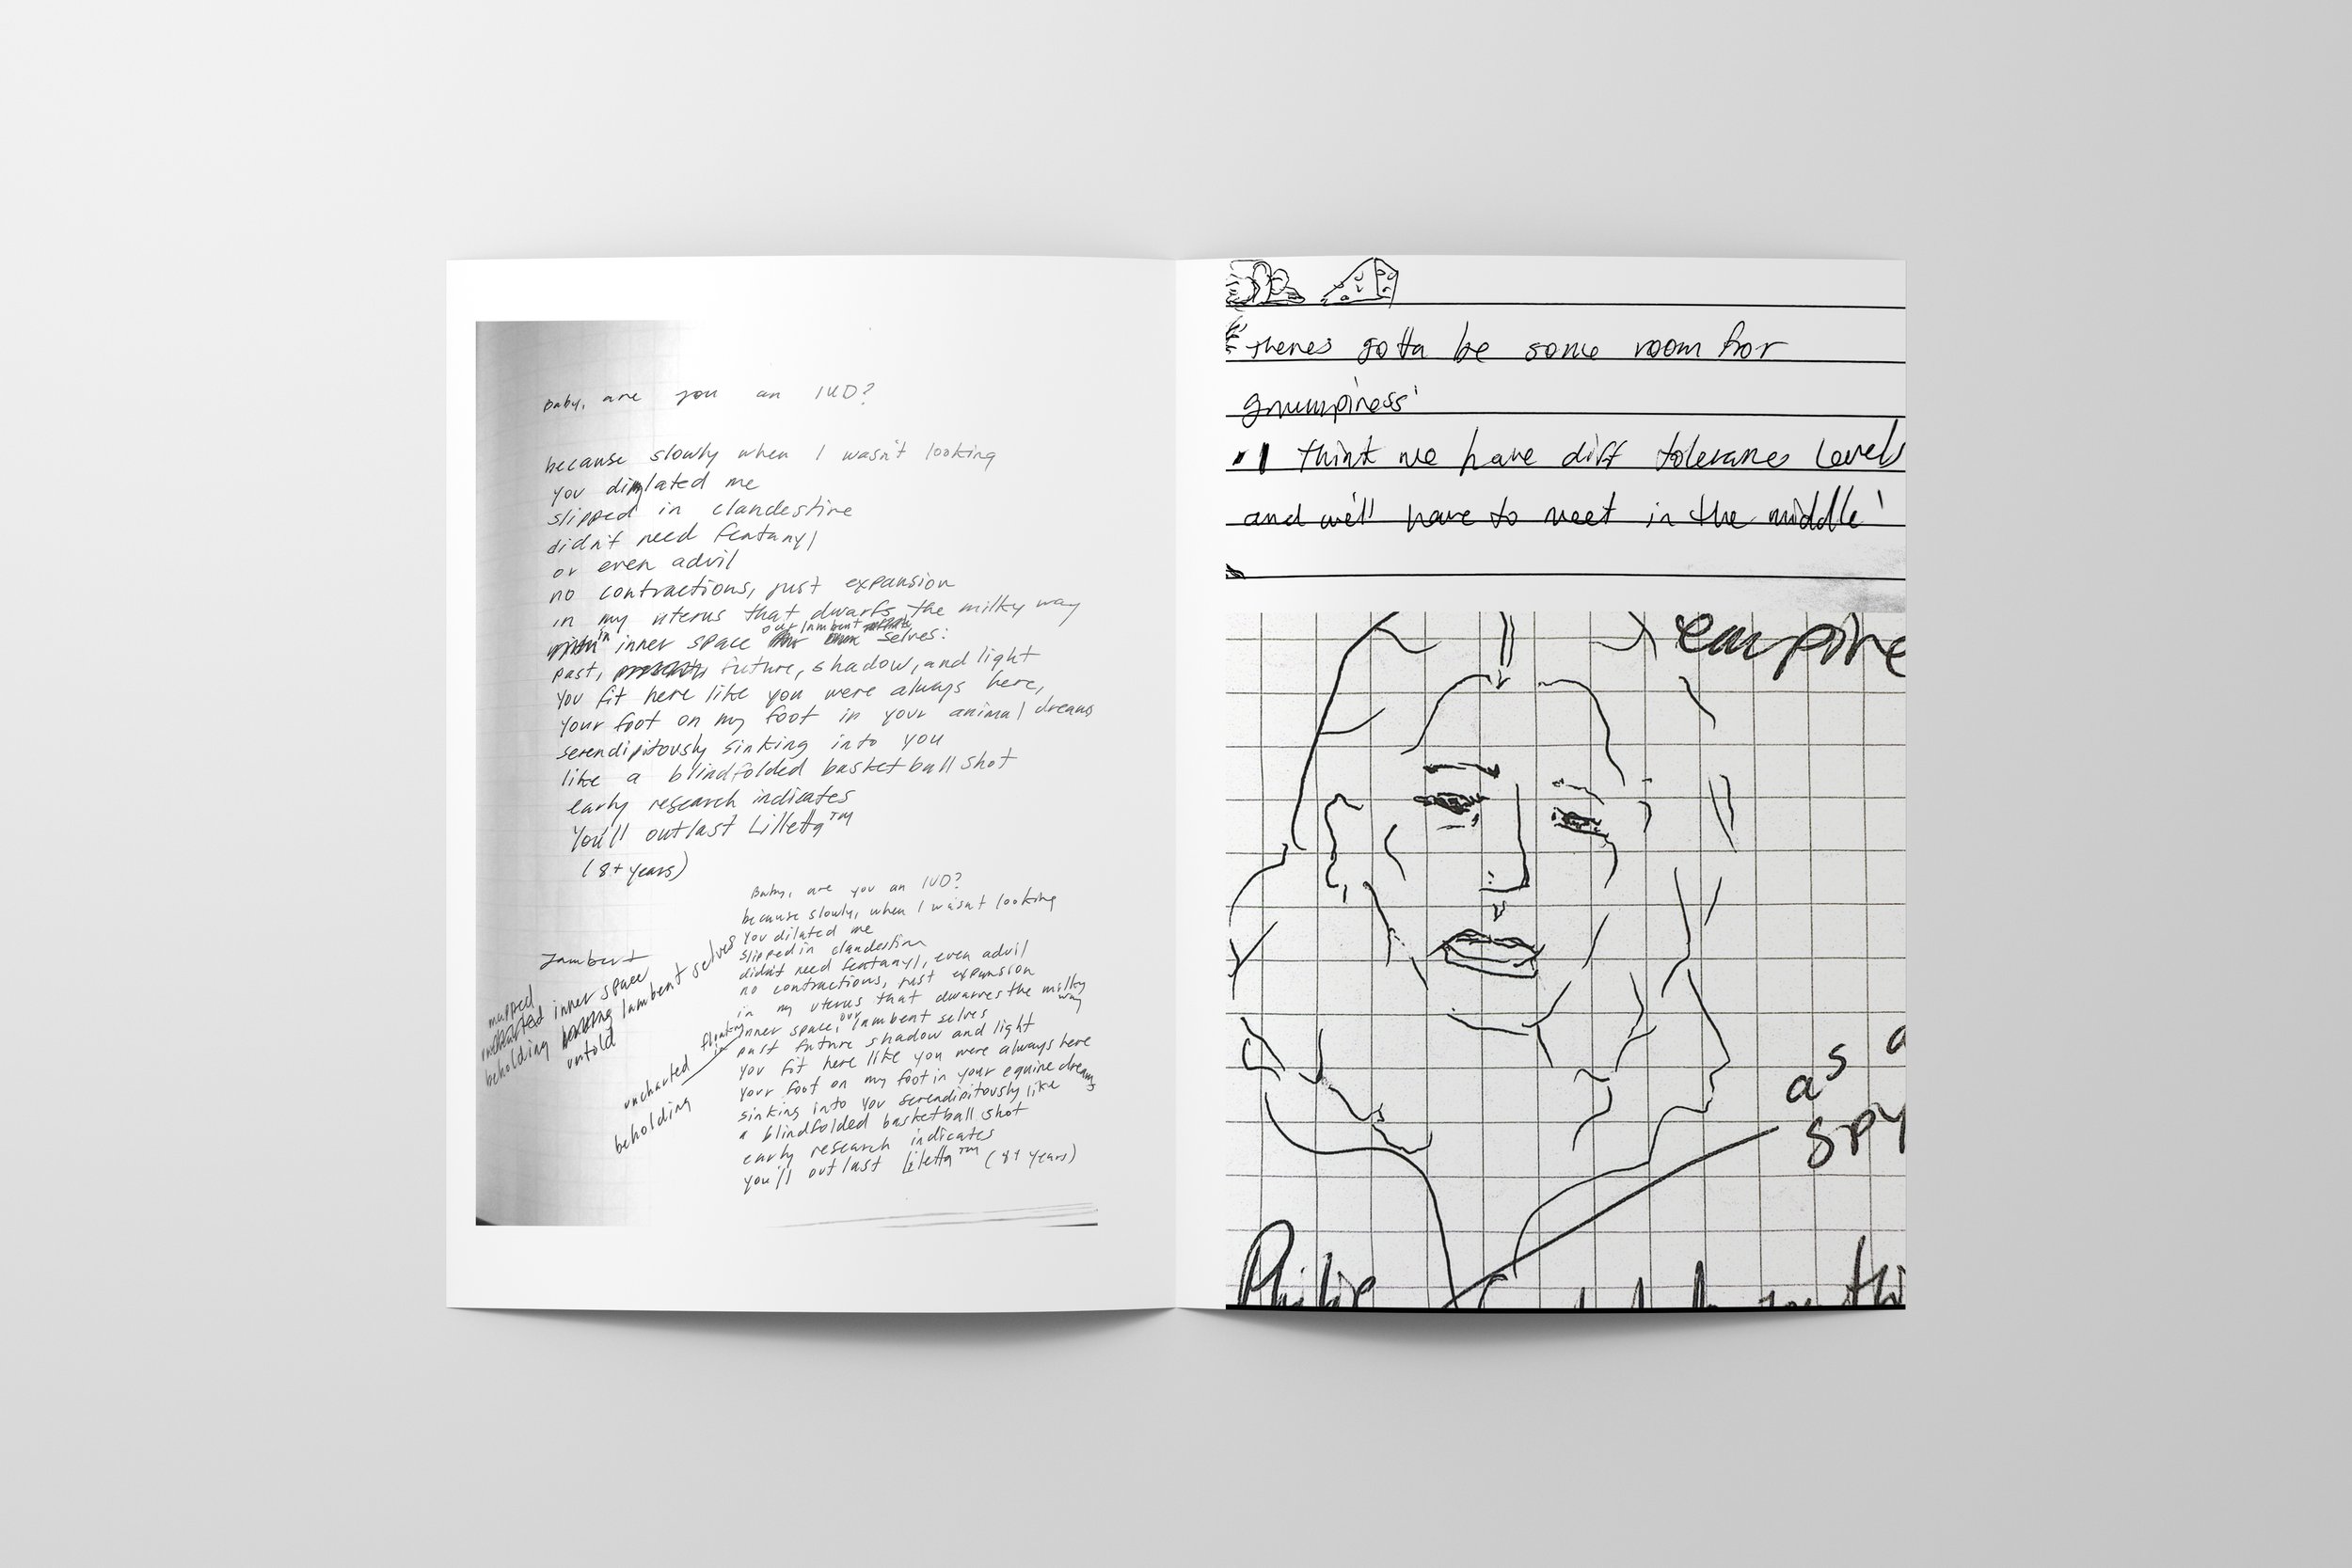 Baby, are you an IUD?
because slowly when I wasn't looking
you dilated me
slipped in clandestine
didn't need fentanyl
or even advil
no contractions, just expansion
in my uterus that dwarfs the milky way
in inner space our lambent selves:
past, future, shadow, and light
you fit here like you were always here,
your foot on my foot in your animal dreams
serendipitously sinking into you
like a blindfolded basketball shot
early research indicates
You'll outlast Lilletta™
(8+ years)
lambert
mapped
inner space
beholding lambent selves
untold
uncharted
beholding
Baby, are you an IUD?
because slowly, when I wasn't looking
you dilated me
slipped in clandestine
didn't need fentanyl, even advil
no contractions, just expansion
in my uterus that dwarves the milky
way
floating
in inner space, our lambent selves
past future shadow and light
you fit here like you were always here
your foot on my foot in your equine dreams
sinking into you serendipitously like
a blindfolded basketball shot
early research indicates
you'll outlast Liletta™ (8+ years)
theres gotta be some room for
grumpiness'
'I think we have diff tolerance levels
and we'll have to meet in the middle'
empire
as a
spy
Philip